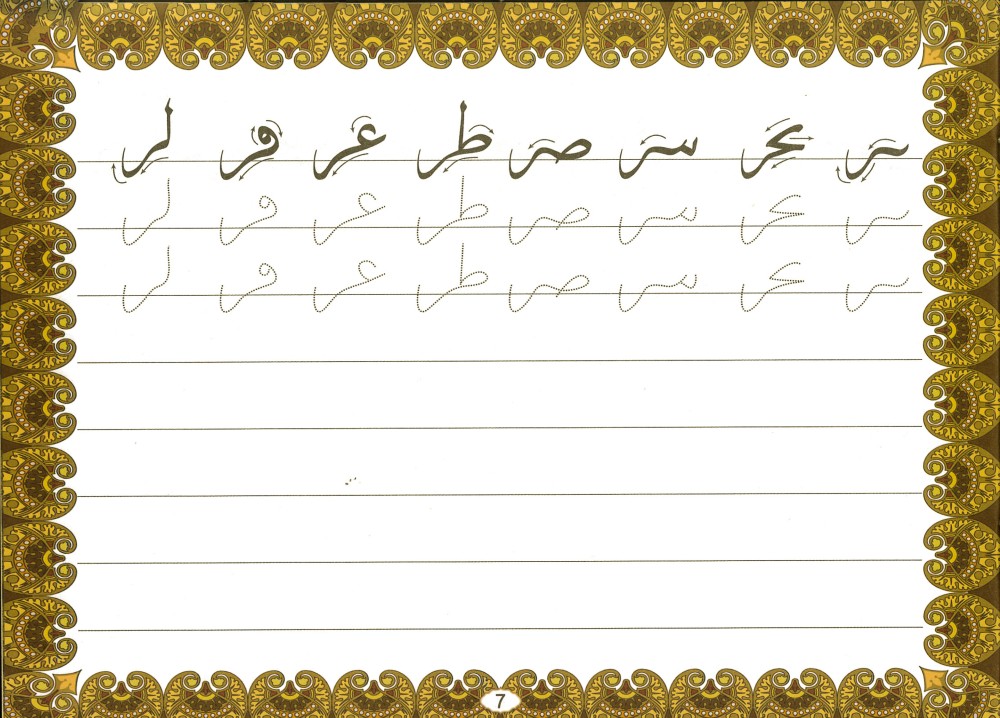 ٮر حر سر صر طر عر ڡر لر
ٮر حر سر صر طر عر ڡر لر
ٮر حر سر صر طر عر ڡر لر
7